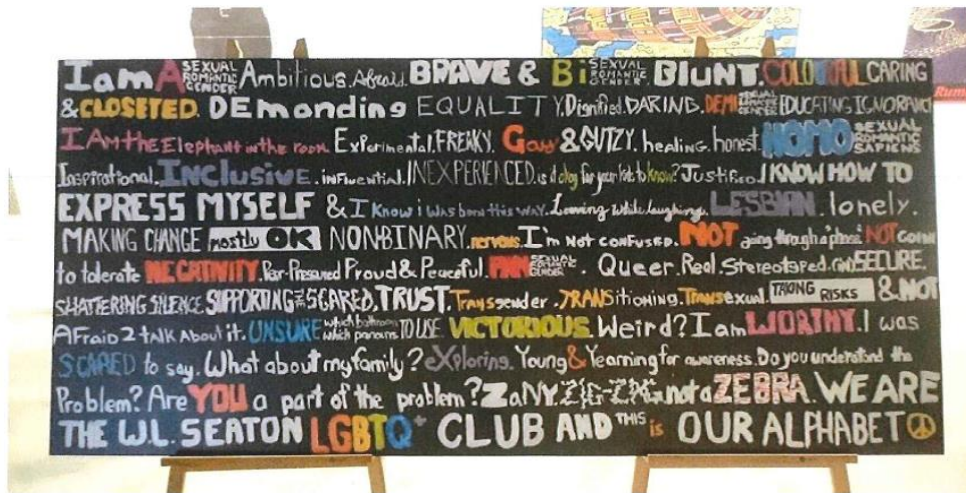 I am A SEXUAL ROMANTIC GENDER Ambitious. Afraid. BRAVE & Bi SEXUAL ROMANTIC GENDER BLUNT. COLOURFUL CARING
& CLOSETED. DEmanding EQUALITY. Dignified. DARING. DEMI SEXUAL ROMANTIC GENDER EDUCATING IGNORANCE
I AM the Elephant in the room. Experimental. FREAKY. Gay & GUTZY. healing. honest. HOMO SEXUAL ROMANTIC SAPIENS
Inspirational. Inclusive. influential. INEXPERIENCED. is it okay for your kids to know? Justified. I KNOW HOW TO
EXPRESS MYSELF & I Know i was born this way. Leaving while laughing. LESBIAN. lonely.
MAKING CHANGE mostly OK NON-BINARY. nervous. I'm Not confused. NOT going through a "phase" NOT GOING
to tolerate NEGATIVITY. Peer-Pressured Proud & Peaceful. PAN SEXUAL ROMANTIC GENDER. Queer. Real. Stereotaped. (in)SECURE.
SHATTERING SILENCE SUPPORTING THE SCARED. TRUST. Transgender. TRANSitioning. Transexual. TAKING RISKS & NOT
AFraid 2 talk About it. UNSURE which bathroom which pronouns TO USE. VICTORIOUS. Weird? I am WORTHY. I was
SCARED to say. What about my family? eXploring. Young & Yearning for awareness. Do you understand the
Problem? Are YOU a part of the problem? ZaNY. ZIG-ZAG. not a ZEBRA. WE ARE
THE W.L. SEATON LGBTQ+ CLUB AND THIS is OUR ALPHABET
Rum